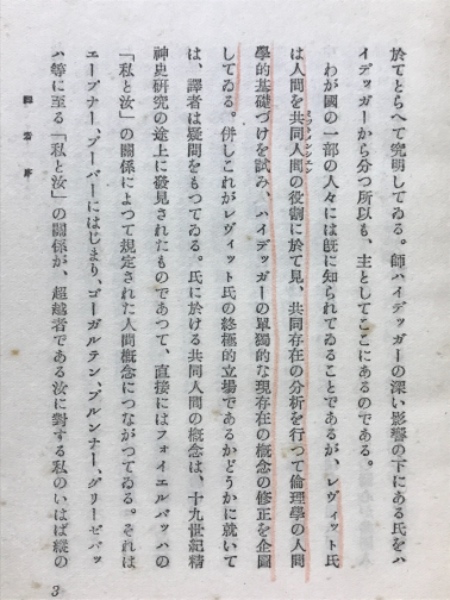 於てとらへて究明してゐる。師ハイデッガーの深い影響の下にある氏をハ
イデッガーから分つ所以も、主としてここにあるのである。
わが國の一部の人々には旣に知られてゐることであるが、レヴィット氏
は人間を共同人間の役割に於て見、共同存在の分析を行つて倫理學の人間
學的基礎づけを試み、ハイデッガーの單獨的な現存在の概念の修正を企圖
してゐる。併しこれがレヴィット氏の終極的立場であるかどうかに就いて
は、譯者は疑問をもつてゐる。氏に於ける共同人間の概念は、十九世紀精
神史研究の途上に發見されたものであつて、直接にはフォイエルバッハの
「私と汝」の關係によつて規定された人間概念につながつてゐる。それは
エーブナー、ブーバーにはじまり、ゴーガルテン、ブルンナー、グリーゼバッ
ハ等に至る「私と汝」の關係が、超越者である汝に對する私のいはば縱の
譯者序
3